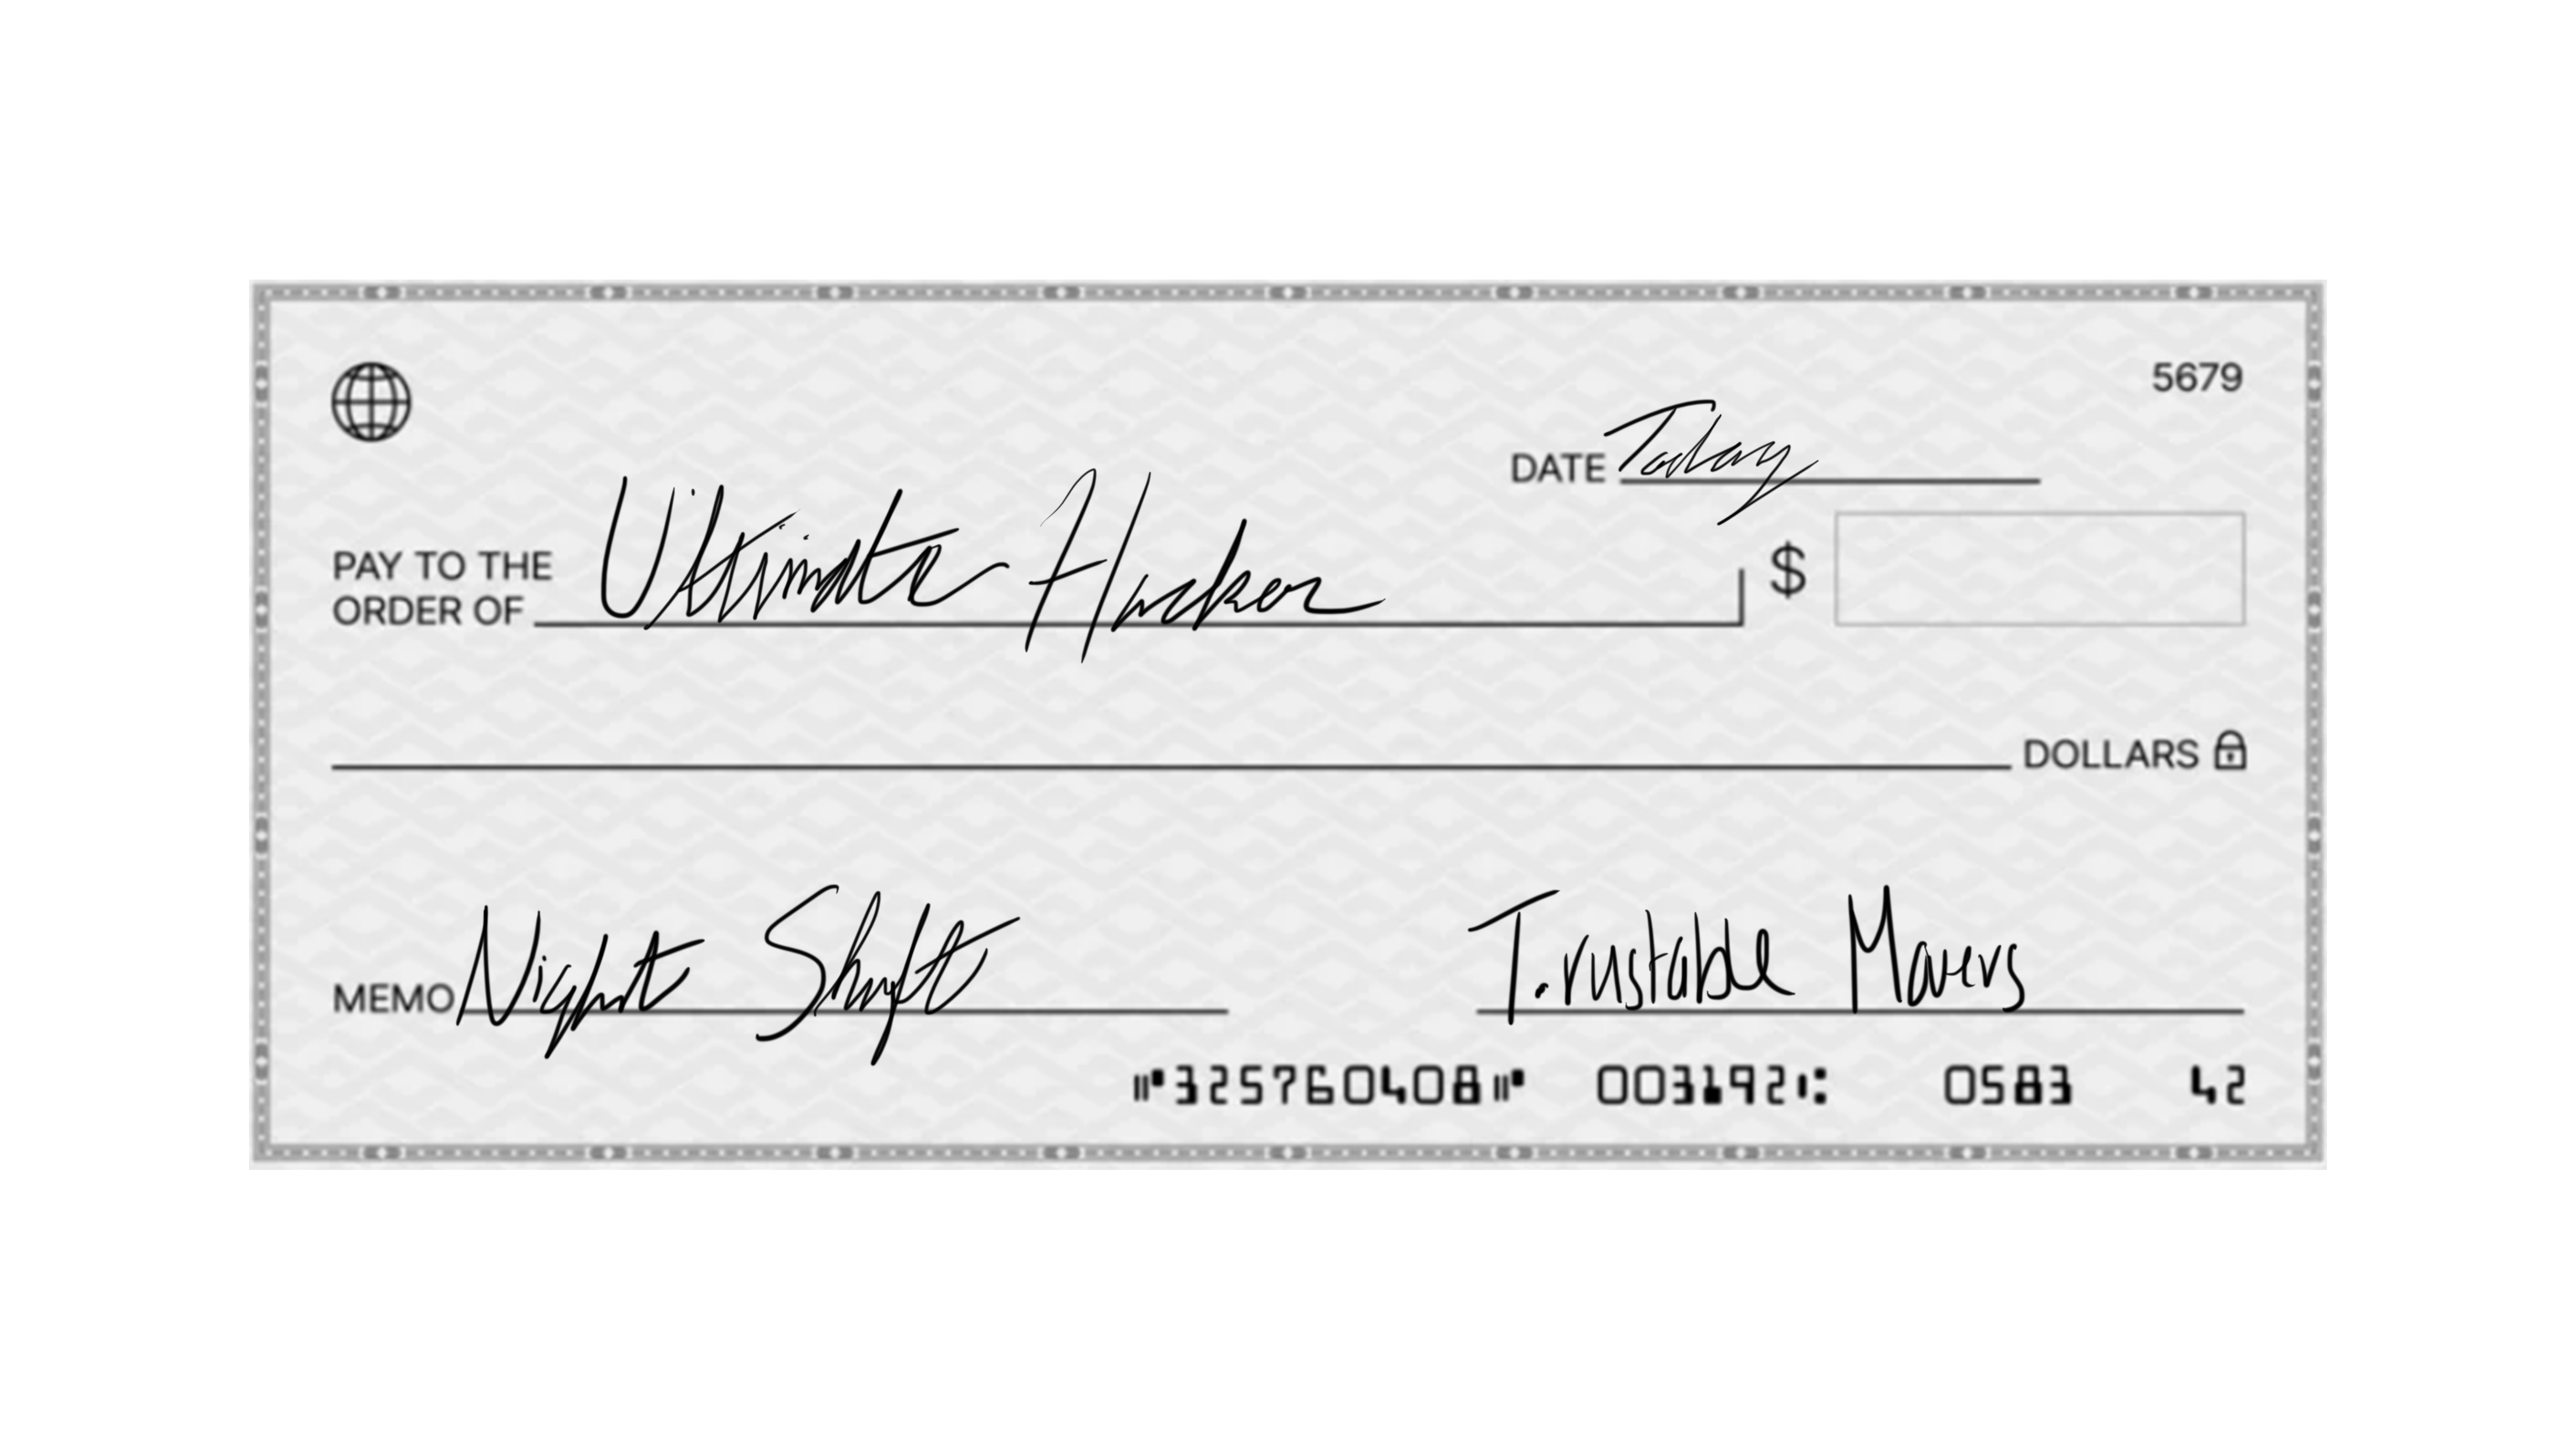 5679
DATE Today
PAY TO THE ORDER OF Ultimate Hacker $
DOLLARS
MEMO Night Shift T.rustable Movers
⑈325760408⑈ 003192⑆ 0583 42